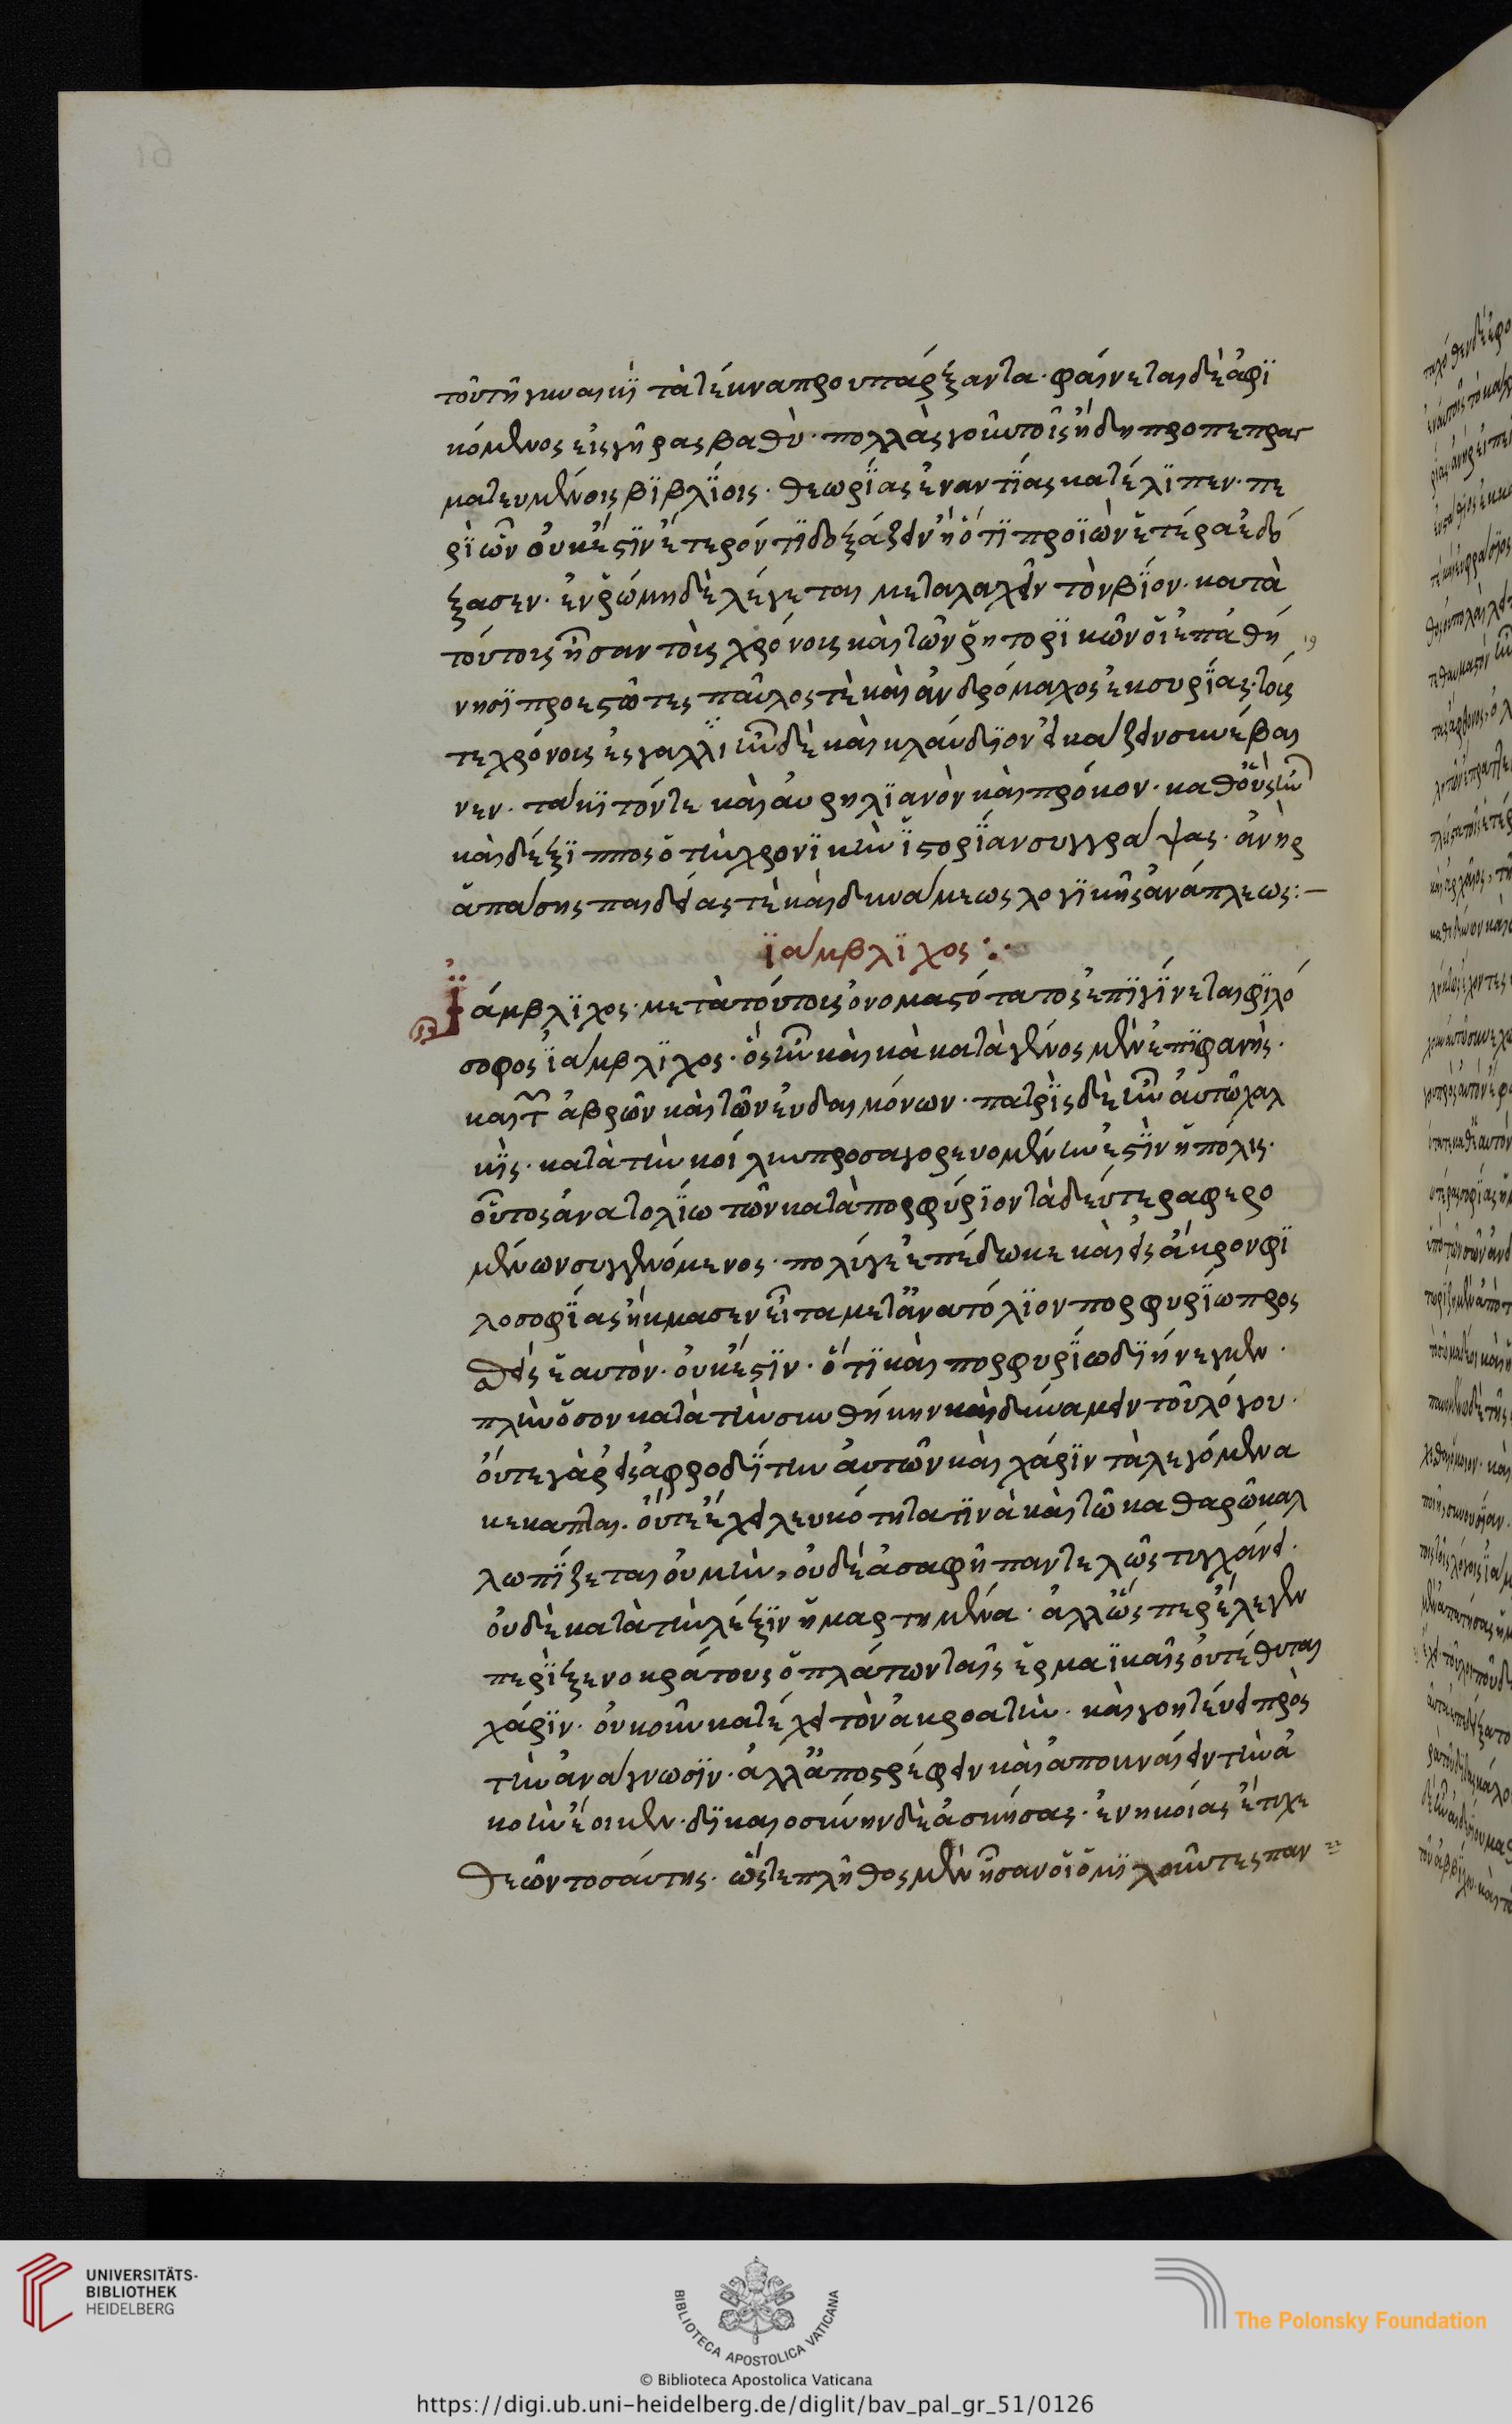 τοῦ τῇ γυναικὶ τὰ τέκνα προυπάρξαντα· φαίνεται δὲ ἀφι
κόμενος εἰς γῆρας βαθὺ· πολλὰς γοῦν τοῖς ἤδη προπεπραγ
ματευμένοις βιβλίοις· θεωρίας ἐναντίας κατέλιπεν· πε
ρὶ ὧν οὐκ ἔστιν ἕτερόν τι δοξάζειν ἢ ὅτι προϊὼν ἕτερα ἐδό
ξασεν· ἐν ῥώμῃ δὲ λέγεται μεταλαχεῖν τὸν βίον· κατὰ
τούτοις ἦσαν τοῖς χρόνοις καὶ τῶν ῥητορικῶν οἱ ἐπ' ἀθή
νησι προεστῶτες παῦλος τὲ καὶ ἀνδρόμαχος ἐκ συρίας· τοῖς
τε χρόνοις ἐς γαλλίην δὲ καὶ κλαύδιον εἰκάζειν συνέβαι
νεν· τάκιτόν τε καὶ αὐρηλιανὸν καὶ πρόκον· καθ' οὓς ἦν
καὶ δέξιππος ὁ τὴν χρονικὴν ἱστορίαν συγγράψας· ἀνὴρ
ἁπάσης παιδείας τὲ καὶ δυνάμεως λογικῆς ἀνάπλεως:—
ἰάμβλιχος:·
Ἰάμβλιχος· μετὰ τούτοις ὀνομαστότατος ἐπιγίνεται φιλό
σοφος ἰάμβλιχος· ὃς ἦν καὶ κὰ κατὰ γένος μὲν ἐπιφανὴς·
καὶ τῶν ἁβρῶν καὶ τῶν ἐυδαιμόνων· πατρὶς δὲ ἦν ἀυτῷ χαλ
κὶς· κατὰ τὴν κοίλην προσαγορευομένην ἐστὶν ἡ πόλις·
οὗτος ἀνατολίω τῶν κατὰ πορφύριον τὰ δεύτερα φερο
μένων συγγενόμενος· πολύ γε ἐπέδωκε καὶ εἰς ἄκρον φι
λοσοφίας ἤκμασεν εἶτα μετ' ἀνατόλιον πορφυρίω προς
θεὶς ἑαυτὸν· οὐκ ἔστιν· ὅ τι καὶ πορφυρίω διήνεγκεν·
πλὴν ὅσον κατὰ τὴν συνθήκην καὶ δύναμειν τοῦ λόγου·
ὄυτε γὰρ εἰς ἀφροδίτην ἀυτῶν καὶ χάριν τὰ λεγόμενα
κεκαπται· ὄυτε ἔχει λευκότητα τινὰ καὶ τῶ καθαρῶ καλ
λωπίζεται οὐ μὴν, οὐδὲ ἀσαφῆ παντελῶς τυγχάνει·
οὐδὲ κατὰ τὴν λέξιν ἡμαρτημένα· ἀλλ' ὥς περ ἔλεγεν
περὶ ξενοκράτους ὁ πλάτων ταῖς ἑρμαϊκαῖς οὐ τέθυται
χάριν· οὐκοῦν κατέχει τὸν ἀκροατὴν· καὶ γοητεύει πρὸς
τὴν ἀνάγνωσιν· ἀλλ' ἀποστρέφειν καὶ ἀποκναίειν τὴν ἀ
κοὴν ἔοικεν· δικαιοσύνην δὲ ἀσκήσας· ἐνηκοίας ἔτυχε
θεῶν τοσάυτης· ὥστε πλῆθος μὲν ἦσαν οἱ ὁμιλοῦντες παν
UNIVERSITÄTS-
BIBLIOTHEK
HEIDELBERG
BIBLIOTECA APOSTOLICA VATICANA
The Polonsky Foundation
© Biblioteca Apostolica Vaticana
https://digi.ub.uni-heidelberg.de/diglit/bav_pal_gr_51/0126